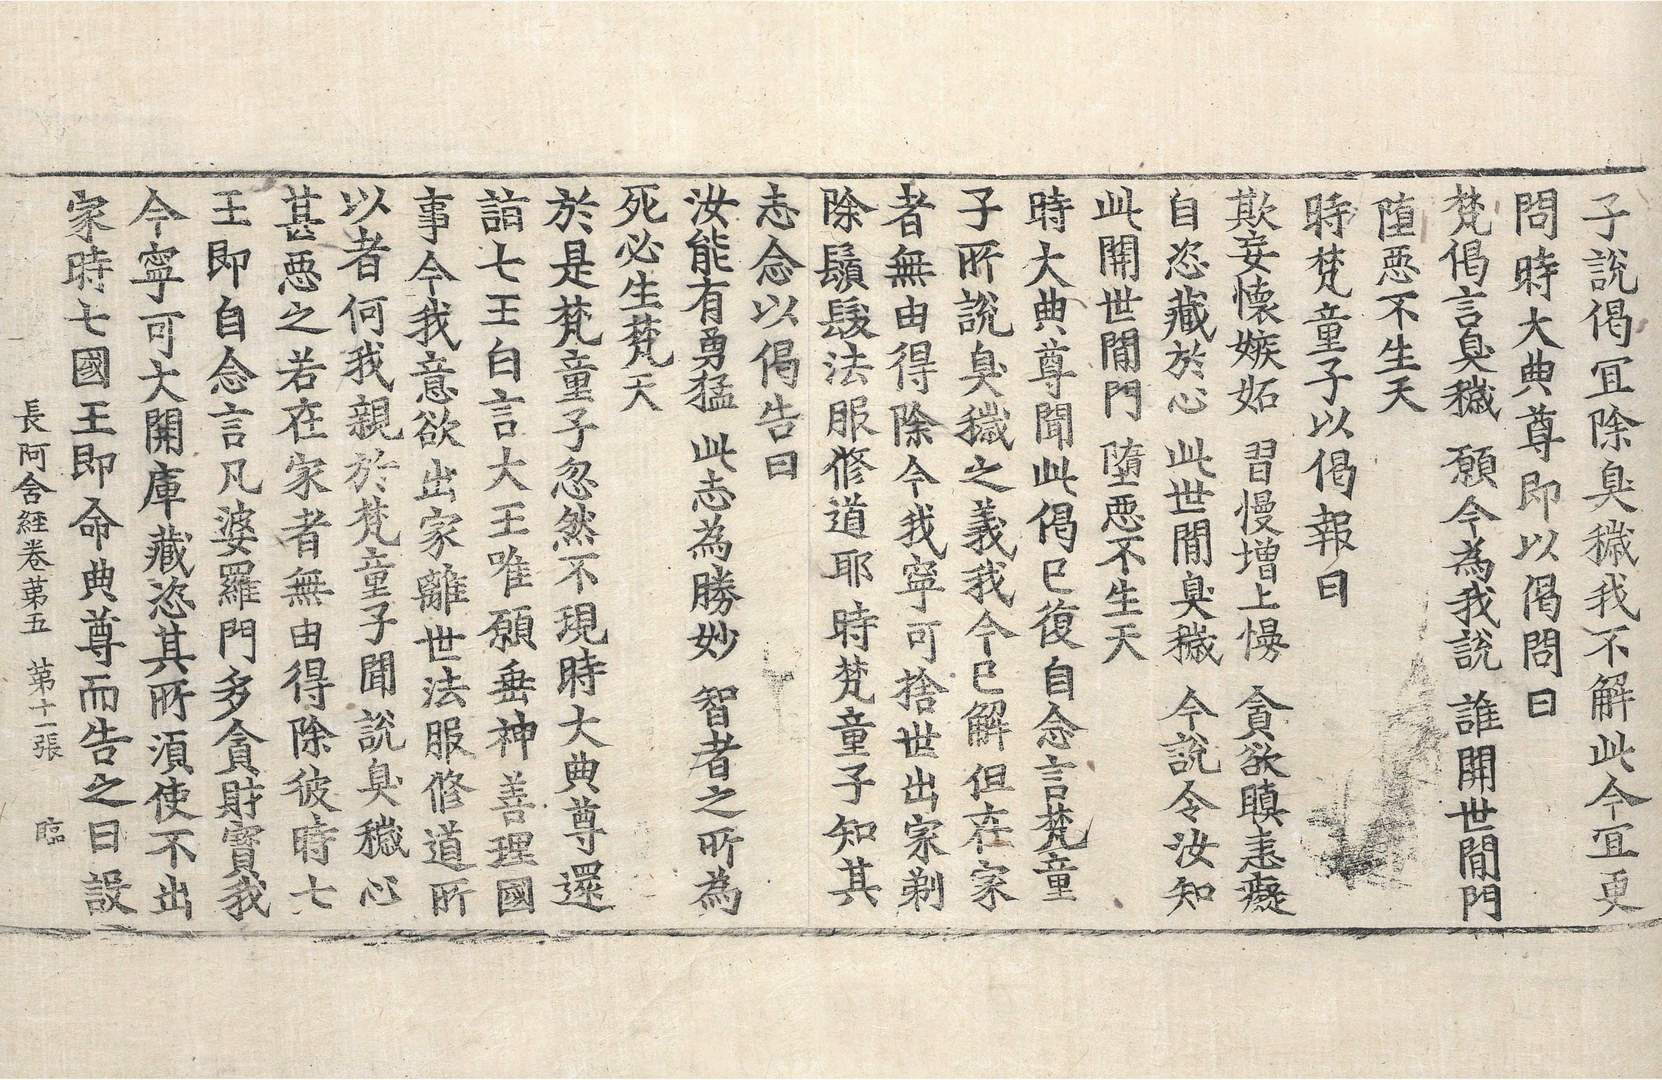 子說偈冝除臭穢我不解此今冝更
問時大典尊即以偈問曰
梵偈言臭穢 願今為我說 誰開世閒門
堕惡不生天
時梵童子以偈報曰
欺妄懷嫉妬 習慢增上慢 貪欲瞋恚癡
自恣藏於心 此世閒臭穢 今說令汝知
此開世閒門 墮惡不生天
時大典尊聞此偈已復自念言梵童
子所說臭穢之義我今已解但在家
者無由得除今我寧可捨世出家剃
除鬚髮法服修道耶時梵童子知其
志念以偈告曰
汝能有勇猛 此志為勝妙 智者之所為
死必生梵天
於是梵童子忽然不現時大典尊還
詣七王白言大王唯願垂神善理國
事今我意欲出家離世法服修道所
以者何我親於梵童子聞說臭穢心
甚惡之若在家者無由得除彼時七
王即自念言凡婆羅門多貪財寶我
今寧可大開庫藏恣其所須使不出
家時七國王即命典尊而告之曰設
長阿含經卷苐五 苐十一張 臨